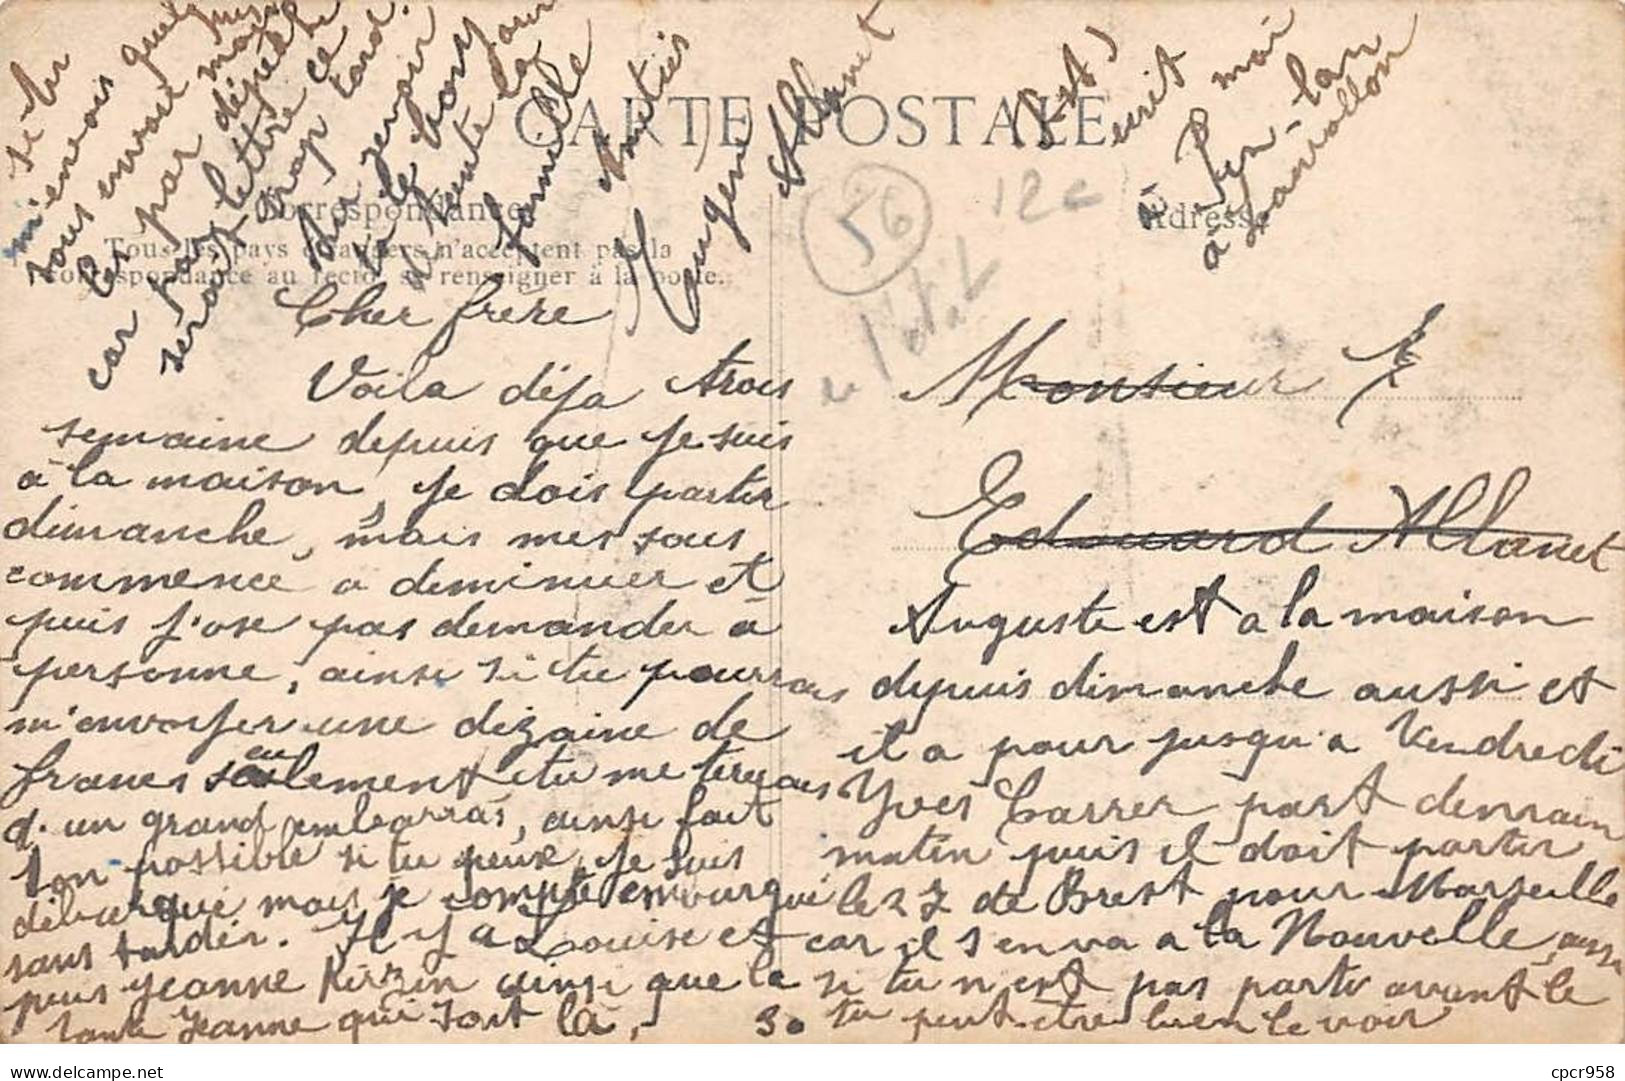 CARTE POSTALE
Correspondance
Tous les pays étrangers n'acceptent pas la
correspondance au recto, se renseigner à la poste.
Adresse
Cher frère
Voila déja trois
semaine depuis que je suis
à la maison, je dois partir
dimanche, mais mes sous
commence a deminuer et
puis j'ose pas demander a
personne, ainsi si tu pourrais
m'envoyer une dizaine de
francs seulement tu me tirerais
d'un grand embarras, ainsi fait
ton possible si tu peux, je suis
débarqué mais je compte embarqué
sans tarder. Il y a Louise et
puis Jeanne Kerzin ainsi que la
tante Jeanne qui sont là,
si tu
m'envois quelque
tous envoié
les par dépêche
car par lettre ce
serait trop tard.
Au revoir
la le
tante la
famille
Amitiés
Eugene Allanet
56
12c
Monsieur E
Edouard Allanet
Auguste est a la maison
depuis dimanche aussi et
il a pour jusqu'a Vendredi
Yves Carrer part demain
matin puis il doit partir
le 27 de Brest pour Marseille
car il s'en va a la Nouvelle, aussi
si tu n'est pas parti avant le
30 tu peut-etre bien le voir
écrit
à moi
à Pen-lan
à
cpcr958